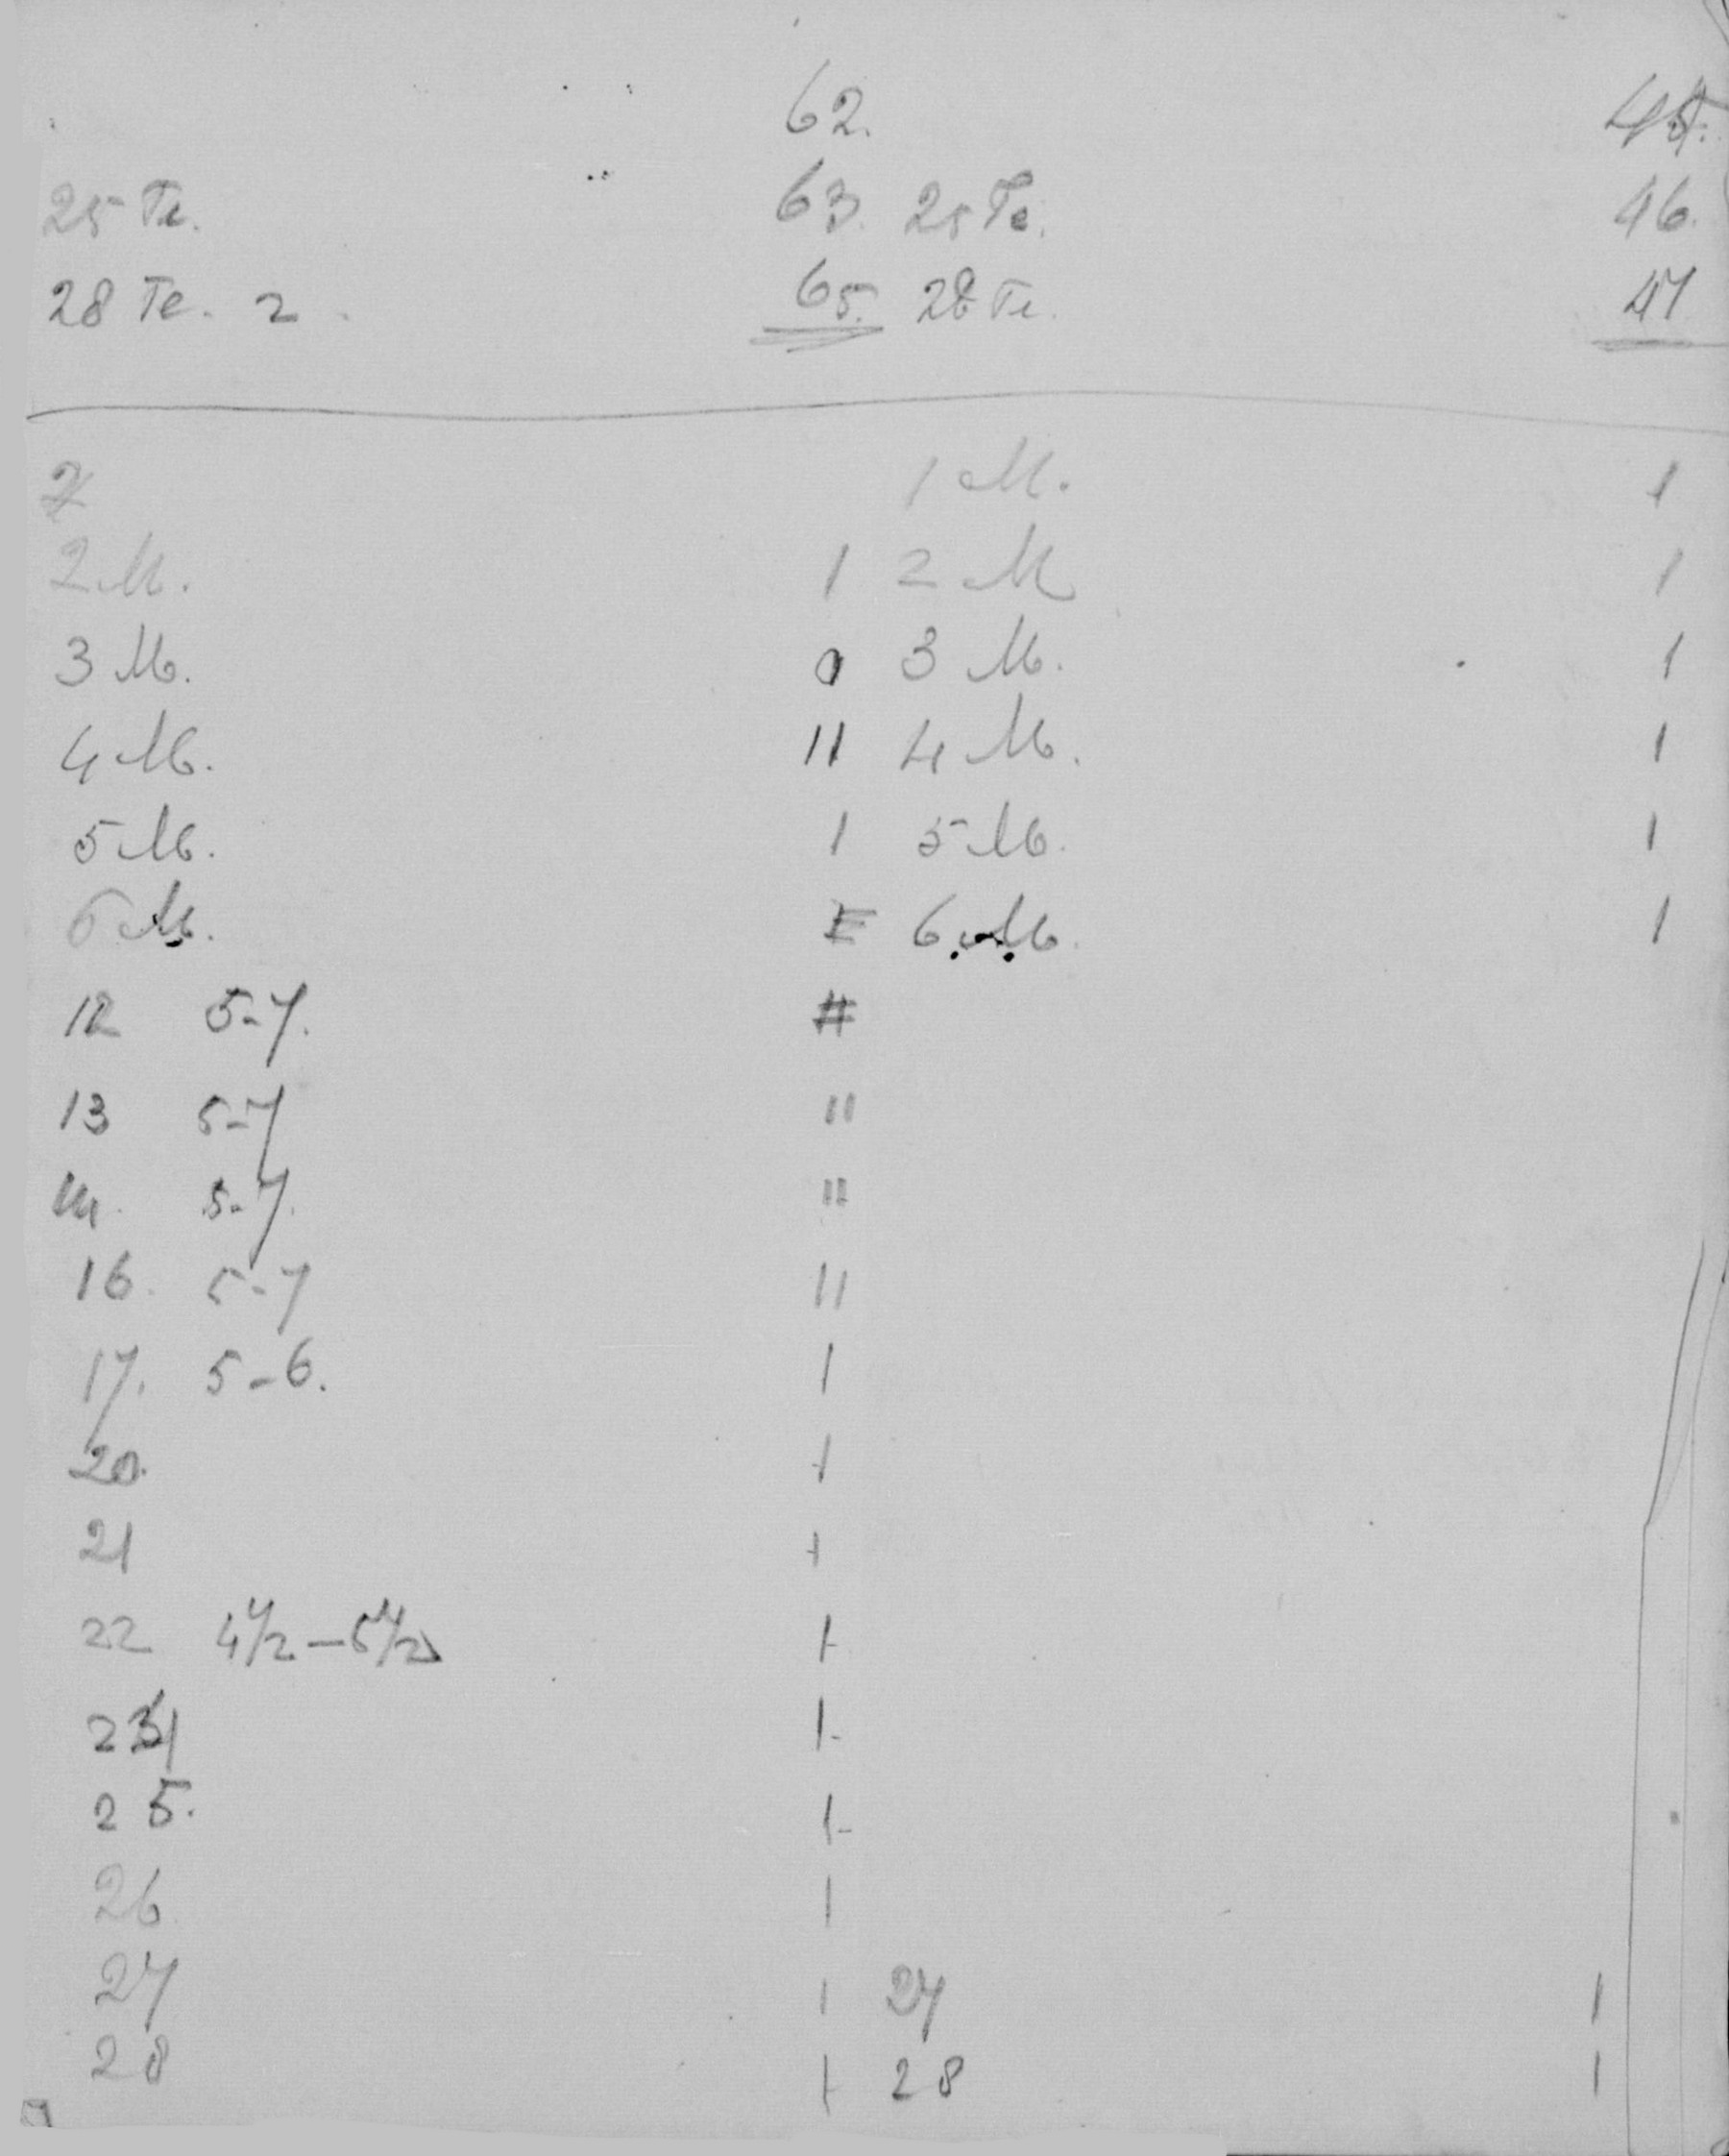 62. 45.
25 Fe. 63. 25 Fe. 46.
28 Fe. 2. 65. 28 Fe. 47
1 M. 1
2 M. 1 2 M 1
3 M. 3 M. 1
4 M. 11 4 M. 1
5 M. 1 5 M. 1
6 M. 6 M. 1
12 5-7. #
13 5-7 11
5-7. 11
16. 5-7 11
17. 5-6. 1
20. 1
21 1
22 4 1/2 - 5 1/2 1-
24 1-
25. 1-
26 1
27 1 27 1
28 1 28 1